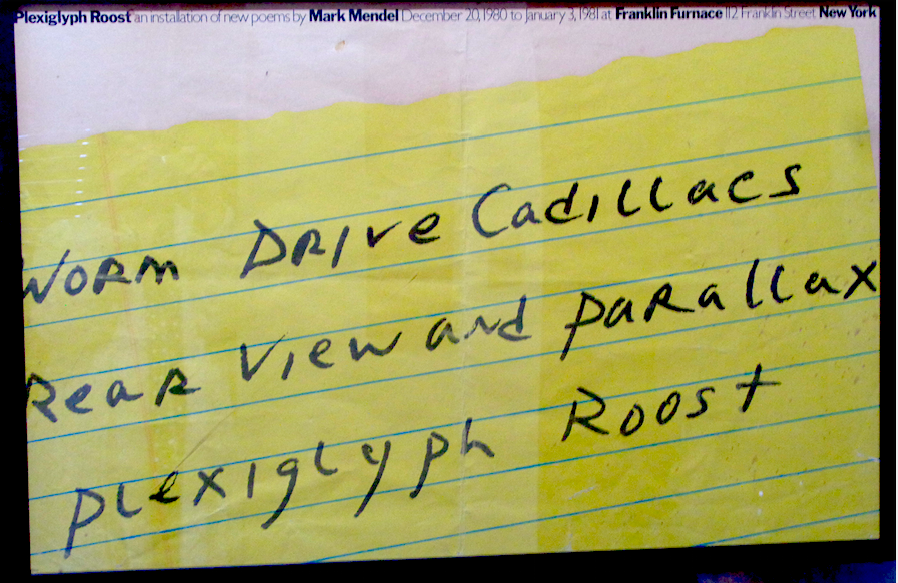 Plexiglyph Roost an installation of new poems by Mark Mendel December 20, 1980 to January 3, 1981 at Franklin Furnace 112 Franklin Street New York
Worm Drive Cadillacs
Rear View and parallax
plexiglyph Roost